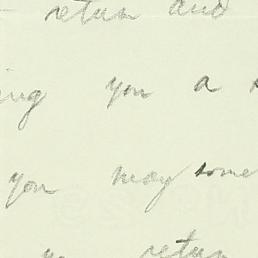 return and
ing you a
you may some
return